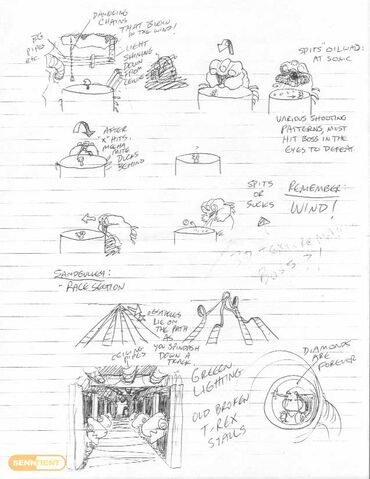 DANGLING
CHAINS
THAT BLOW
IN THE WIND!
BG
PIPES
ETC.
LIGHT
SHINING
DOWN
"SPITS" OIL WAD
AT SONIC
VARIOUS SHOOTING
PATTERNS, MUST
HIT BOSS IN THE
EYES TO DEFEAT.
AFTER
HITS,
MECHA
MITE
DUCKS
BEHIND
SPITS
OR
SUCKS
REMEMBER
WIND!
BOSS?!
- RACE SECTION
OBSTACLES
LIE ON
THE PATH
AS
YOU SPINDASH
DOWN A
TRACK.
CEILING
PIPES
GREEN
LIGHTING
OLD BROKEN
T-REX
STALLS
DIAMONDS
ARE
FOREVER
SENNTIENT